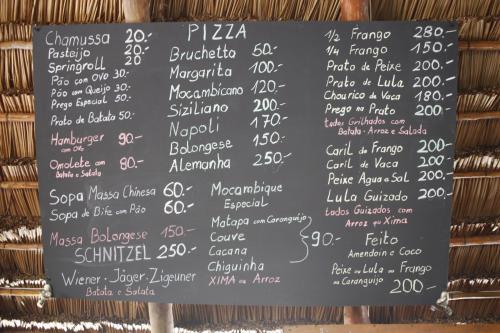 Chamussa 20.-
Pasteijo 20.-
Springroll 20
Pão com Ovo 30.-
Pão com Queijo 30.-
Prego Especial 50.-
Prato de Batata 50.-
Hamburger 90.-
com Ovo
Omolete com 80.-
Batata e Salada
Sopa Massa Chinesa 60.-
Sopa de Bife com Pão 60.-
Massa Bolongese 150.-
SCHNITZEL 250.-
Wiener - Jäger - Zigeuner
Batata e Salata
PIZZA
Bruchetta 50.-
Margarita 100.-
Moçambicano 120.-
Siziliano 200.-
Napoli 170.-
Bolongese 150.-
Alemanha 250.-
Mocambique
Especial
Matapa com Caranguijo
Couve
Cacana 90.-
Chiguinha
XIMA ou Arroz
1/2 Frango 280.-
1/4 Frango 150.-
Prato de Peixe 200.-
Prato de Lula 200.-
Chourico de Vaca 180.-
Prego no Prato 200.-
todos Grilhados com
Batata - Arroz e Salada
Caril de Frango 200.-
Caril de Vaca 200.-
Peixe Agua e Sal 200.-
Lula Guizado 200.-
todos Guizados com
Arroz ou Xima
Feito
Amendoin e Coco
Peixe ou Lula ou Frango
ou Caranguijo 200.-